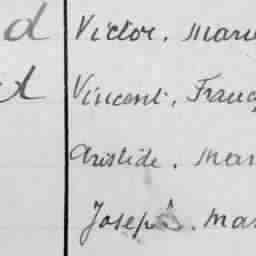 d Victor, Marie
Vincent, Franç
Aristide, Mar
Joseph, Mar